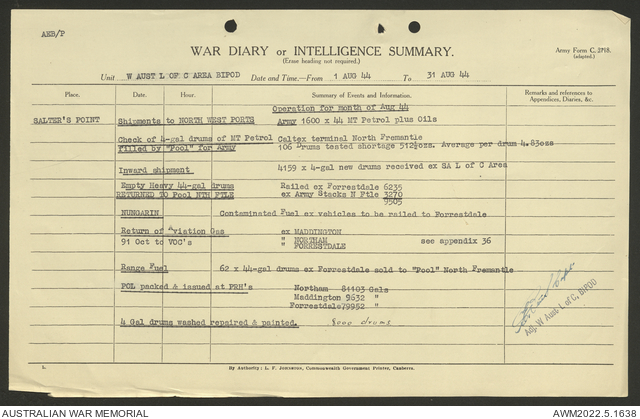 AEB/P
WAR DIARY or INTELLIGENCE SUMMARY.
(Erase heading not required.)
Army Form C. 2118.
(adapted.)
Unit W AUST L OF C AREA BIPOD Date and Time.—From 1 AUG 44 To 31 AUG 44
Place. Date. Hour. Summary of Events and Information. Remarks and references to Appendices, Diaries, &c.
Operation for month of Aug 44
SALTER'S POINT Shipments to NORTH WEST PORTS Army 1600 x 44 MT Petrol plus Oils
Check of 4-gal drums of MT Petrol Caltex terminal North Fremantle
filled by "Pool" for Army 106 Drums tested shortage 512½ozs. Average per drum 4.83ozs
Inward shipment 4159 x 4-gal new drums received ex SA L of C Area
Empty Heavy 44-gal drums Railed ex Forrestdale 6235
RETURNED TO Pool NTH FTLE ex Army Stocks N Ftle 3270
9505
NUNGARIN Contaminated Fuel ex vehicles to be railed to Forrestdale
Return of Aviation Gas ex MADDINGTON
91 Oct to VOC's " NORTHAM see appendix 36
" FORRESTDALE
Range Fuel 62 x 44-gal drums ex Forrestdale sold to "Pool" North Fremantle
POL packed & issued at PRH's Northam 81103 Gals
Maddington 9632 "
Forrestdale 79952 "
4 Gal drums washed repaired & painted. 8000 drums
Adj. W Aust L of C. BIPOD
L. By Authority: L. F. Johnston, Commonwealth Government Printer, Canberra.
AUSTRALIAN WAR MEMORIAL AWM2022.5.1638